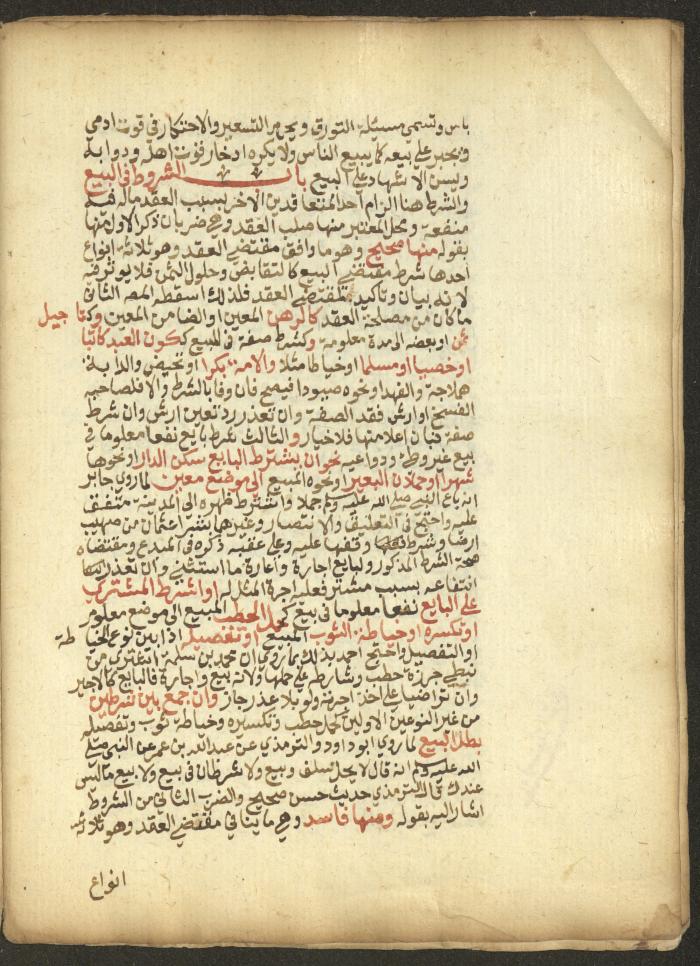 باس وتسمى مسئلة التورق ويحرم التسعير والاحتكار في قوت ادمي
ويجبر على بيعه كما يبيع الناس ولا يكره ادخار قوت اهله ودوابه
ويسن الاشهاد على البيع باب الشروط في البيع
والشرط هنا الزام احد المتعاقدين الاخر بسبب العقد ماله فيه
منفعة ومحل المعتبر منها صلب العقد وهي ضربان ذكر الاول منها
بقوله منها صحيح وهو ما وافق مقتضى العقد وهو ثلاثة انواع
احدها شرط مقتضى البيع كالتقابض وحلول الثمن فلا يوثر فيه
لانه بيان وتاكيد لمقتضى العقد فلذلك اسقطه المص الثاني
ما كان من مصلحة العقد كالرهن المعين او الضامن المعين وكتاجيل
ثمن او بعضه الى مدة معلومة وكشرط صفة في المبيع ككون العبد كاتبا
او خصيا او مسلما او خياطا مثلا والامة بكرا او تحيض والدابة
هملاجة والفهد او نحوه صيودا فيصح فان وفا بالشرط والا فلصاحبه
الفسخ او ارش فقد الصفة وان تعذر رد تعين ارش وان شرط
صفة فبان اعلا منها فلا خيار والثالث شرط بايع نفعا معلوما في
مبيع غير وطء ودواعيه نحو ان يشترط البايع سكنى الدار او نحوها
شهرا او حملان البعير او نحوه المبيع الى موضع معين لما روى جابر
انه باع النبي صلى الله عليه وسلم جملا واشترط ظهره الى المدينة متفق
عليه واحتج في التعليق والانتصار وغيرهما بشراء عثمان من صهيب
ارضا وشرط وقفها عليه وعلى عقبه ذكره في المبدع ومقتضاه
صحة الشرط المذكور ولبايع اجارة واعارة ما استثنى وان تعذر
انتفاعه بسبب مشتر فعليه اجرة المثل له او اشترط المشتري
على البايع نفعا معلوما في مبيع كحمل الحطب المبيع الى موضع معلوم
او تكسيره او خياطة الثوب المبيع او تفصيله اذا بين نوع الخياطة
او التفصيل واحتج احمد لذلك بما روي ان محمد بن سلمة اشترى من
نبطي جرزة حطب وشارطه على حملها ولانه بيع واجارة فالبايع كالاجير
وان تراضيا على اخذ اجرته ولو بلا عذر جاز وان جمع بين شرطين
من غير النوعين الاولين كحمل حطب وتكسيره وخياطة ثوب وتفصيله
بطل البيع لما روى ابو داود والترمذي عن عبد الله بن عمر عن النبي صلى
الله عليه وسلم انه قال لا يحل سلف وبيع ولا شرطان في بيع ولا بيع ما ليس
عندك قال الترمذي حديث حسن صحيح والضرب الثاني من الشروط
اشار اليه بقوله ومنها فاسد وهو ما ينافي مقتضى العقد وهو ثلاثة
انواع